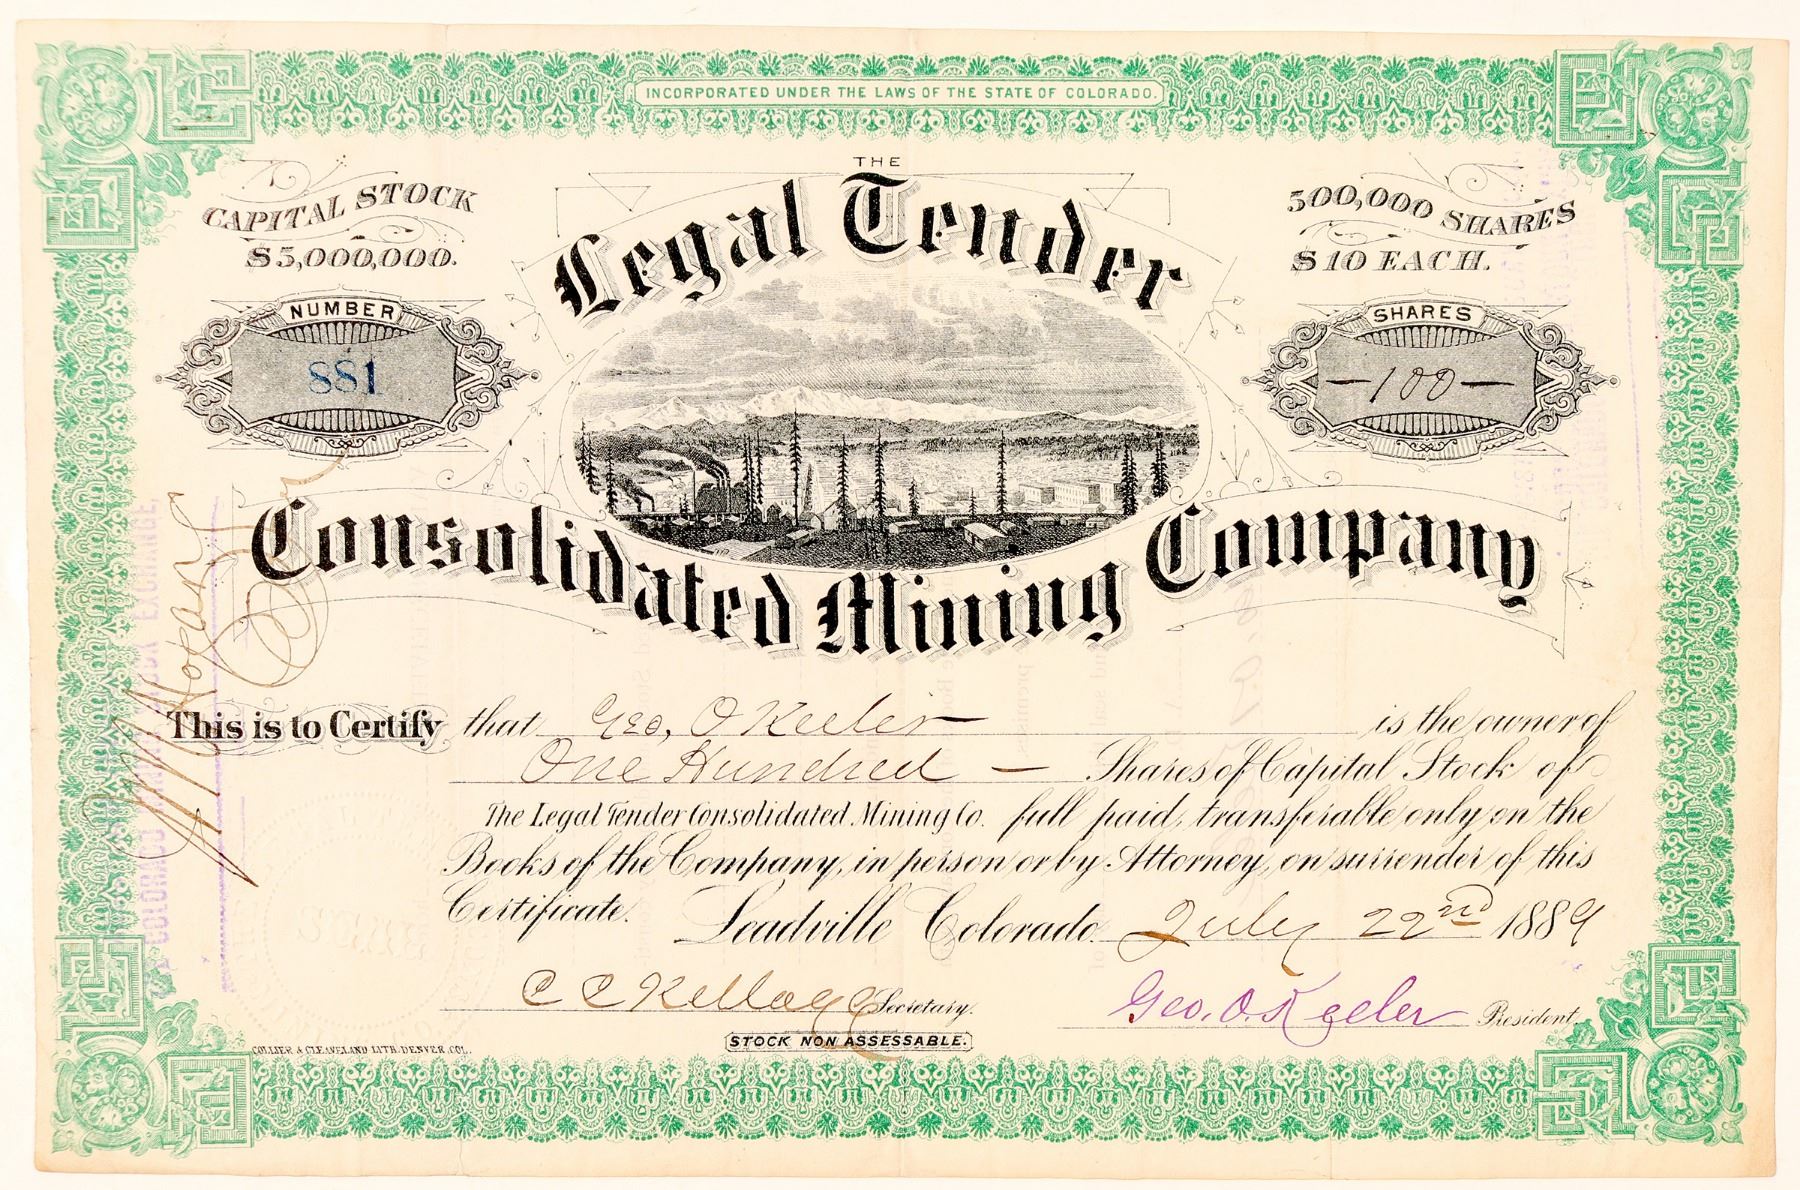 INCORPORATED UNDER THE LAWS OF THE STATE OF COLORADO.
CAPITAL STOCK
$5,000,000.
THE
Legal Tender
500,000 SHARES
$10 EACH.
NUMBER
881
SHARES
—100—
Consolidated Mining Company
This is to Certify that Geo. O Keeler is the owner of
One Hundred — Shares of Capital Stock of
The Legal Tender Consolidated Mining Co. full paid, transferable only on the
Books of the Company, in person or by Attorney, on surrender of this
Certificate. Leadville Colorado. July 22nd 1889
C C Kellogg Secretary. Geo. O. Keeler President.
STOCK NON ASSESSABLE.
COLLIER & CLEAVELAND LITH. DENVER, COL.